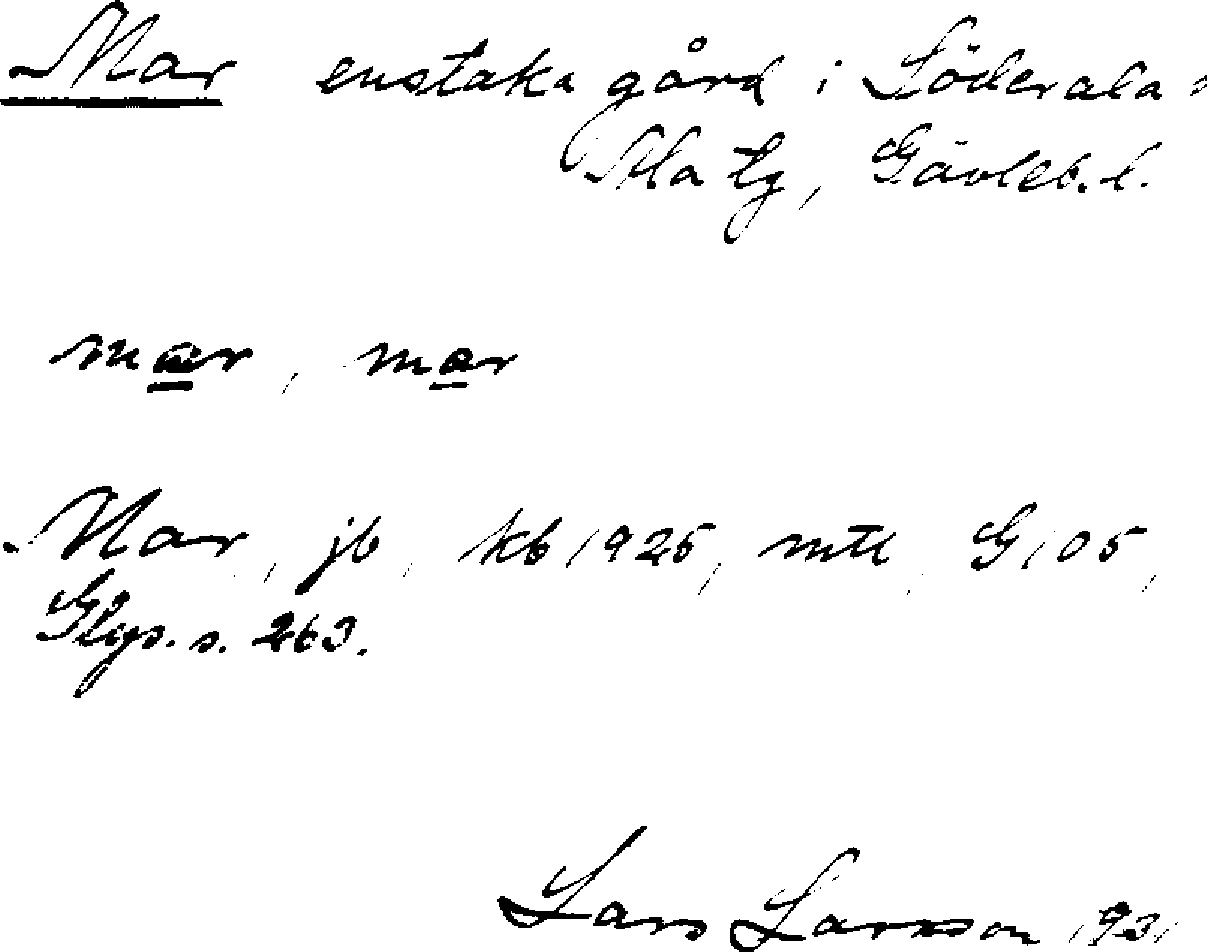 Mar enstaka gård i Söderala
Ala tg, Gävleb. l.
mær, mær
Mar, jb, kb 1925, mtl, G 105,
s. 263.
Lars Larsson 1931